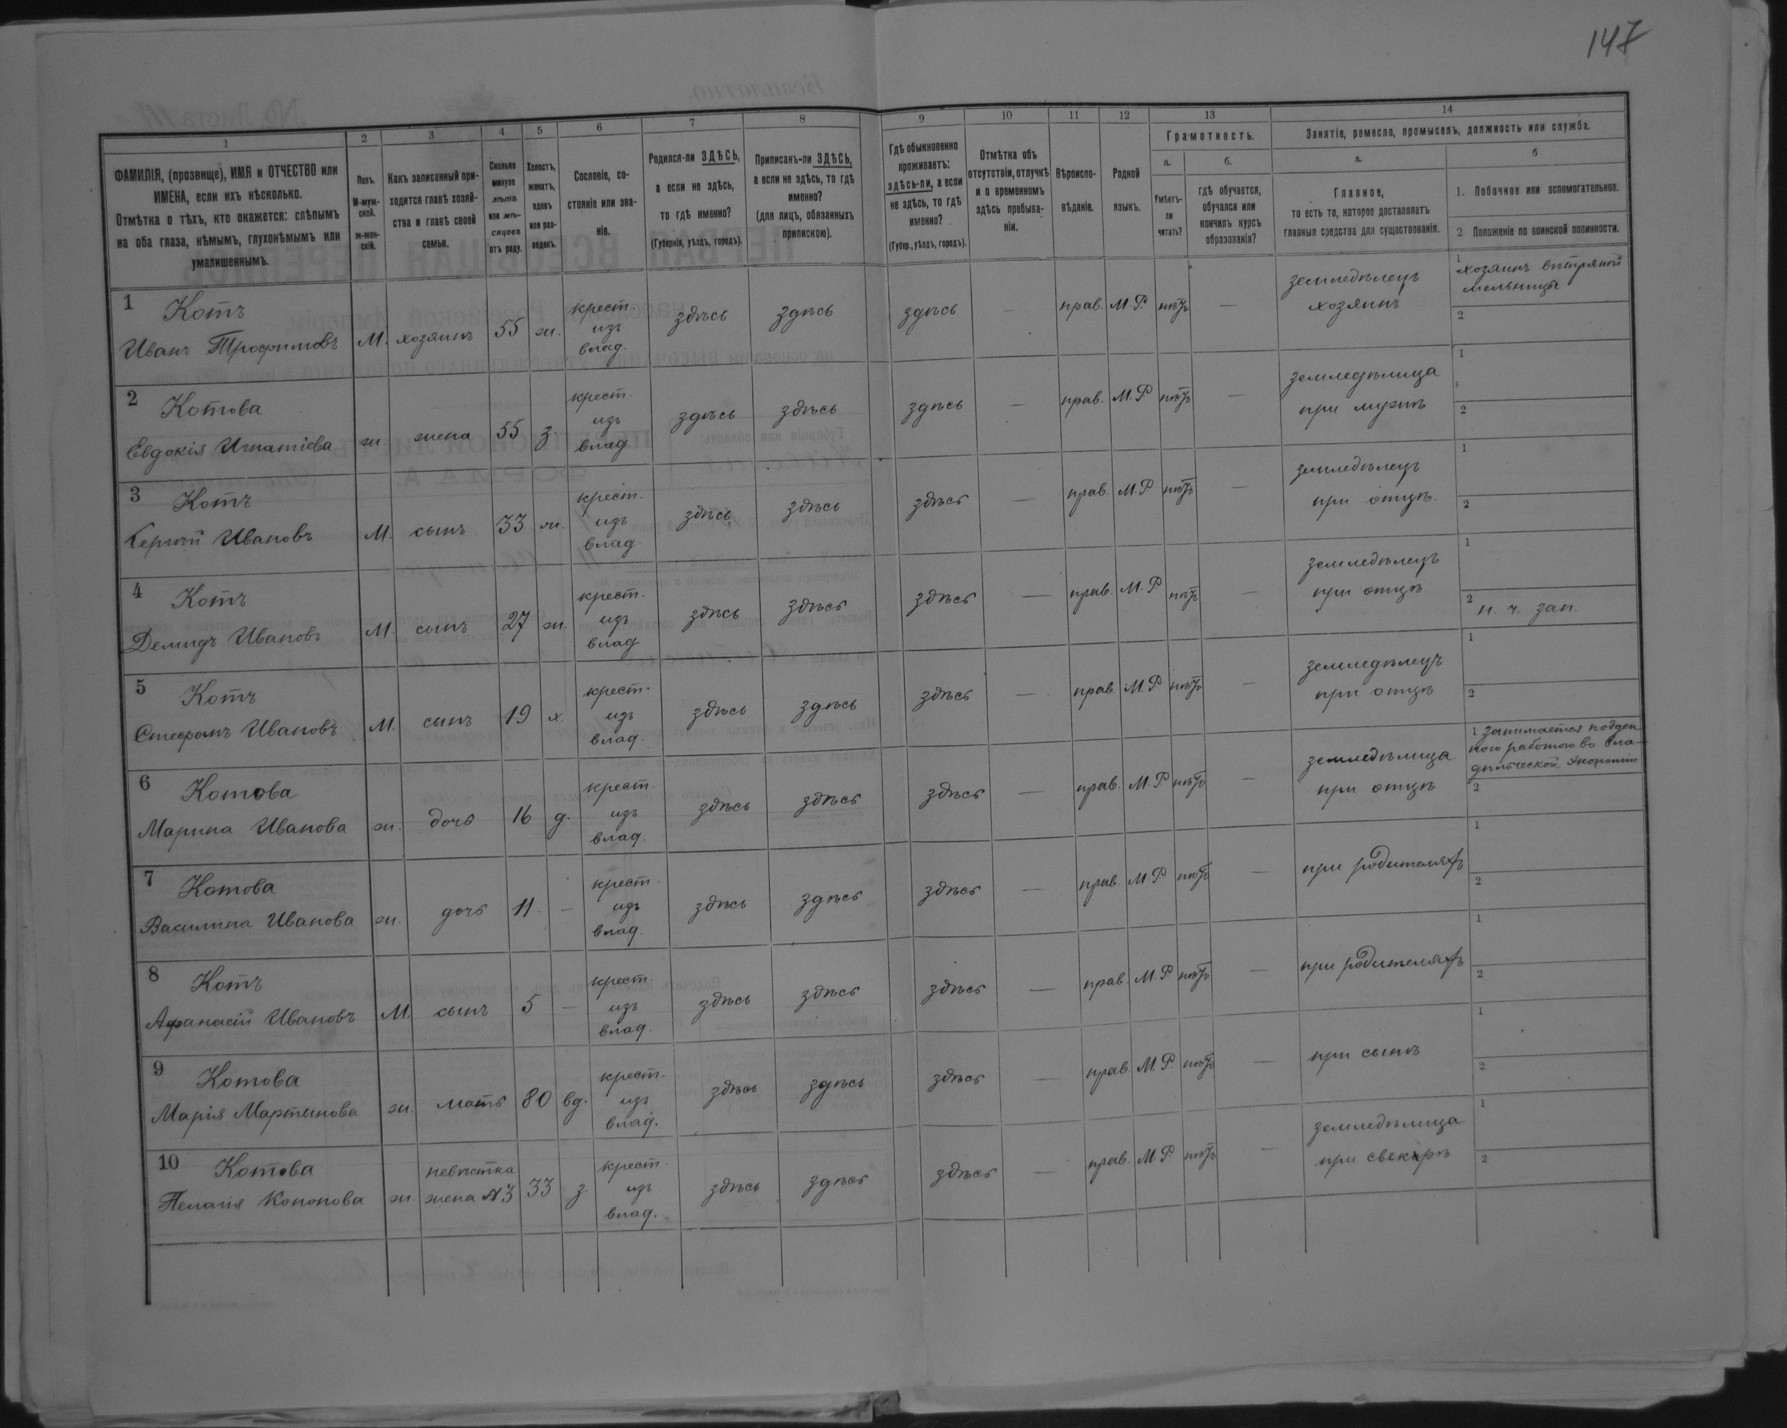 147
1 2 3 4 5 6 7 8 9 10 11 12 13 14
ФАМИЛІЯ, (прозвище), ИМЯ и ОТЧЕСТВО или
ИМЕНА, если ихъ нѣсколько.
Отмѣтка о тѣхъ, кто окажется: слѣпымъ
на оба глаза, нѣмымъ, глухонѣмымъ или
умалишеннымъ.
Полъ.
М-муж-
ской.
ж-жен-
скій.
Какъ записанный при-
ходится главѣ хозяй-
ства и главѣ своей
семьи.
Сколько
минуло
лѣтъ
или мѣ-
сяцевъ
отъ роду.
Холостъ,
женатъ,
вдовъ
или раз-
веденъ.
Сословіе, со-
стояніе или зва-
ніе.
Родился-ли ЗДѢСЬ,
а если не здѣсь,
то гдѣ именно?
(Губернія, уѣздъ, городъ).
Приписанъ-ли ЗДѢСЬ,
а если не здѣсь, то гдѣ
именно?
(для лицъ, обязанныхъ
припискою).
Гдѣ обыкновенно
проживаетъ:
здѣсь-ли, а если
не здѣсь, то гдѣ
именно?
(Губер., уѣздъ, городъ).
Отмѣтка объ
отсутствіи, отлучкѣ
и о временномъ
здѣсь пребыва-
ніи.
Вѣроиспо-
вѣданіе.
Родной
языкъ.
Грамотность.
а.
Умѣетъ-
ли
читать?
б.
гдѣ обучается,
обучался или
кончилъ курсъ
образованія?
Занятіе, ремесло, промыселъ, должность или служба.
а.
Главное,
то есть то, которое доставляетъ
главныя средства для существованія.
б
1. Побочное или вспомогательное.
2 Положеніе по воинской повинности.
1 Котъ
Иванъ Трофимовъ М. хозяинъ 55 ж. крест.
изъ
влад. здѣсь здѣсь здѣсь — прав. М.Р. нѣтъ — земледѣлецъ
хозяинъ 1 хозяинъ вѣтряной
мельницы
2
2 Котова
Евдокія Игнатіева ж. жена 55 з. крест.
изъ
влад. здѣсь здѣсь здѣсь — прав. М.Р. нѣтъ — земледѣлица
при мужѣ 1
2
3 Котъ
Сергій Ивановъ М. сынъ 33 ж. крест.
изъ
влад. здѣсь здѣсь здѣсь — прав. М.Р. нѣтъ — земледѣлецъ
при отцѣ. 1
2
4 Котъ
Демидъ Ивановъ М. сынъ 27 ж. крест.
изъ
влад. здѣсь здѣсь здѣсь — прав. М.Р. нѣтъ — земледѣлецъ
при отцѣ 1
2 н. ч. зап.
5 Котъ
Стефанъ Ивановъ М. сынъ 19 х. крест.
изъ
влад. здѣсь здѣсь здѣсь — прав. М.Р. нѣтъ — земледѣлецъ
при отцѣ 1
2
6 Котова
Марина Иванова ж. дочь 16 д. крест.
изъ
влад. здѣсь здѣсь здѣсь — прав. М.Р. нѣтъ — земледѣлица
при отцѣ 1 занимается поден
ною работою во вла-
дѣльческой экономіи
2
7 Котова
Василина Иванова ж. дочь 11. — крест.
изъ
влад. здѣсь здѣсь здѣсь — прав. М.Р. нѣтъ — при родителяхъ 1
2
8 Котъ
Афанасій Ивановъ М. сынъ 5 — крест.
изъ
влад. здѣсь здѣсь здѣсь — прав. М.Р. нѣтъ — при родителяхъ 1
2
9 Котова
Марія Мартынова ж. мать 80 вд. крест.
изъ
влад. здѣсь здѣсь здѣсь — прав. М.Р. нѣтъ — при сынѣ 1
2
10 Котова
Пелагія Кононова ж невѣстка
жена №3 33 з. крест.
изъ
влад. здѣсь здѣсь здѣсь — прав. М.Р. нѣтъ — земледѣлица
при свекорѣ 1
2